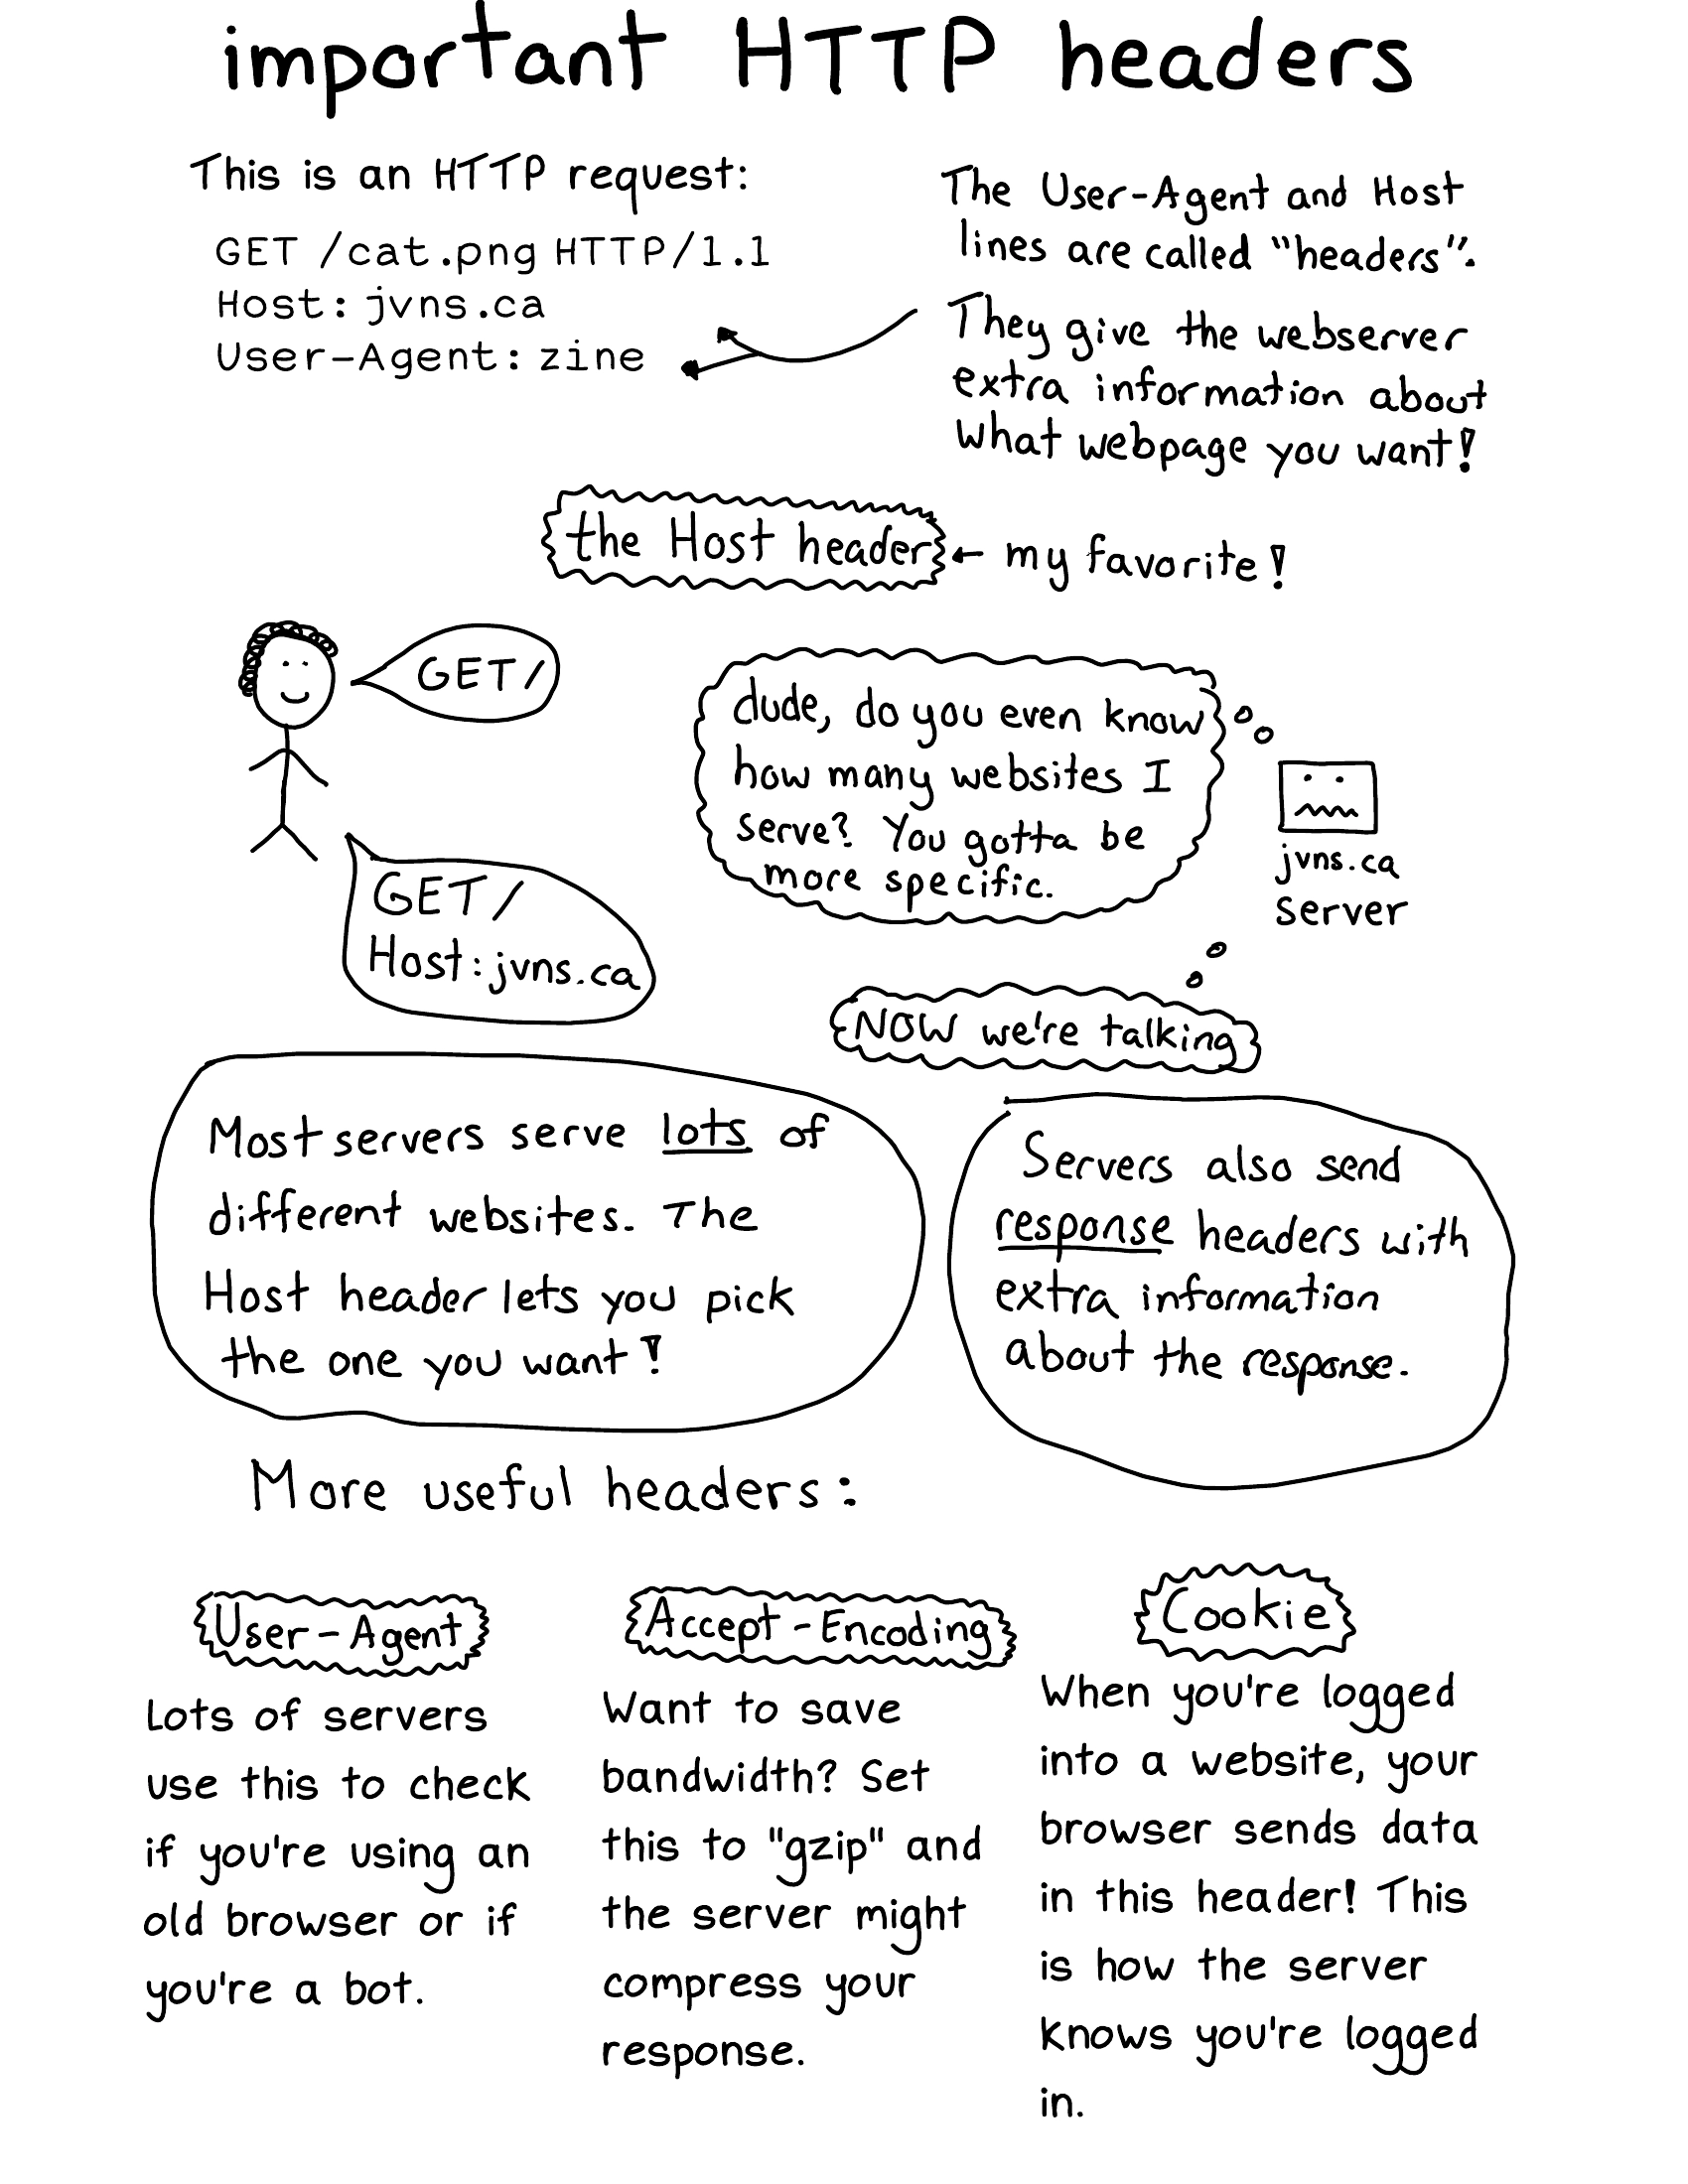 important HTTP headers
This is an HTTP request:
GET /cat.png HTTP/1.1
Host: jvns.ca
User-Agent: zine
The User-Agent and Host
lines are called "headers".
They give the webserver
extra information about
what webpage you want!
the Host header ← my favorite!
GET /
dude, do you even know
how many websites I
serve? You gotta be
more specific.
jvns.ca
server
GET /
Host: jvns.ca
NOW we're talking
Most servers serve lots of
different websites. The
Host header lets you pick
the one you want!
Servers also send
response headers with
extra information
about the response.
More useful headers:
User-Agent
Lots of servers
use this to check
if you're using an
old browser or if
you're a bot.
Accept-Encoding
Want to save
bandwidth? Set
this to "gzip" and
the server might
compress your
response.
Cookie
When you're logged
into a website, your
browser sends data
in this header! This
is how the server
knows you're logged
in.